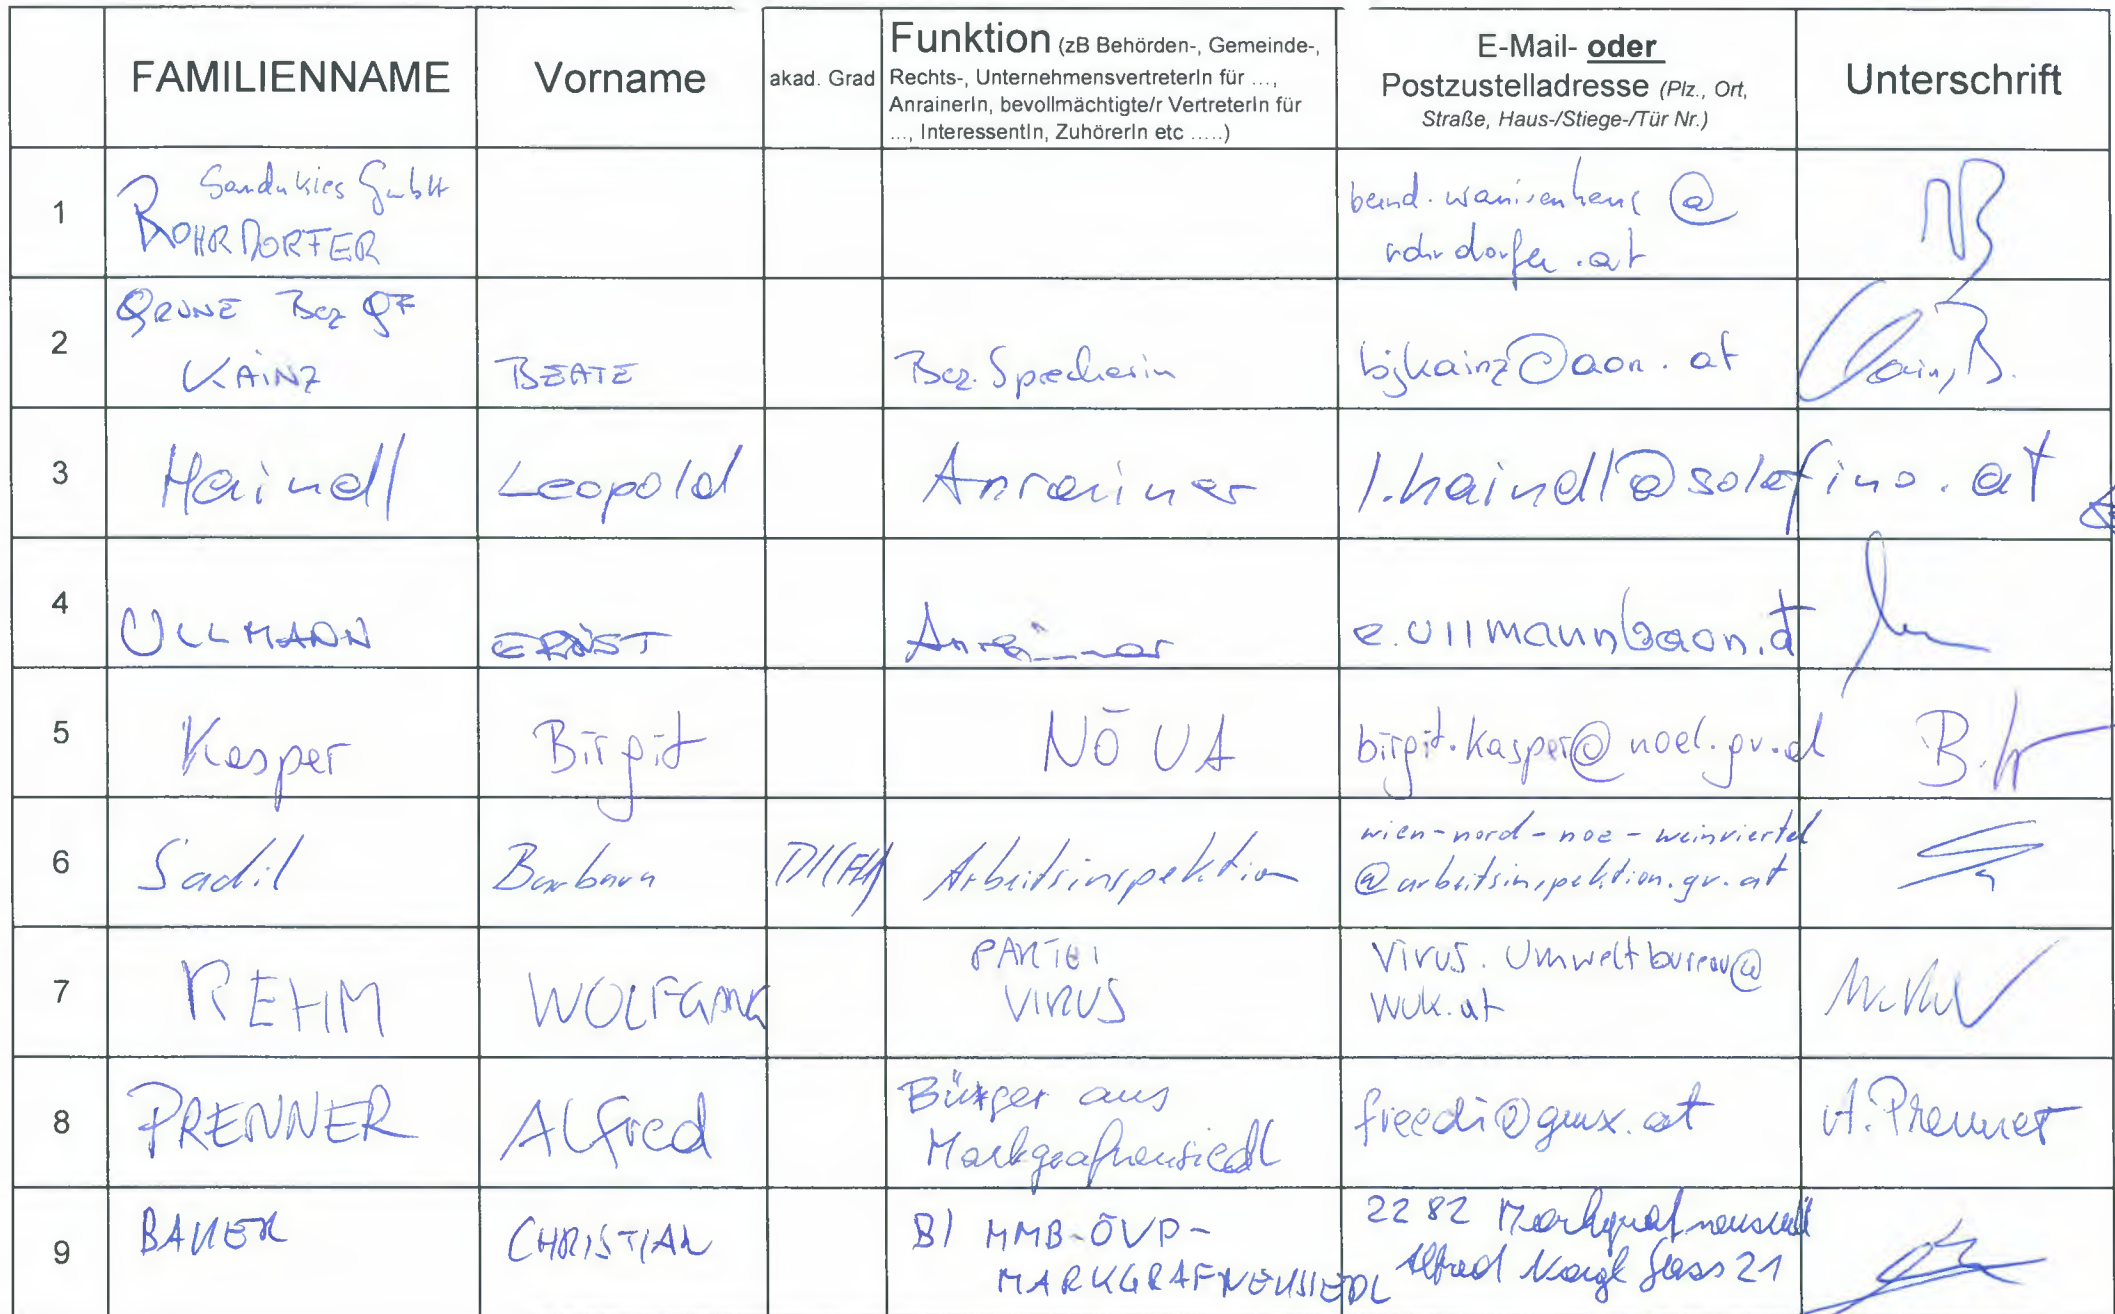 FAMILIENNAME
Vorname
akad. Grad
Funktion (zB Behörden-, Gemeinde-,
Rechts-, UnternehmensvertreterIn für ...,
AnrainerIn, bevollmächtigte/r VertreterIn für
..., InteressentIn, ZuhörerIn etc .....)
E-Mail- oder
Postzustelladresse (Plz., Ort,
Straße, Haus-/Stiege-/Tür Nr.)
Unterschrift
1
Sand u Kies GmbH
ROHRDORFER
bernd.
@
rohrdorfer.at
2
GRÜNE Bez GF
KAINZ
BEATE
Bez. Sprecherin
bjkainz@aon.at
3
Haindl
Leopold
Anrainer
l.haindl@solofino.at
4
ULLMANN
ERNST
Anrainer
e.ullmann@aon.at
5
Kasper
Birgit
NÖ UA
birgit.kasper@noel.gv.at
6
Sadil
Barbara
DI(FH)
Arbeitsinspektion
wien-nord-noe-weinviertel
@arbeitsinspektion.gv.at
7
REHM
WOLFGANG
PARTEI
VIRUS
Virus.Umweltbureau@
wuk.at
8
PRENNER
Alfred
Bürger aus
Markgrafneusiedl
freedi@gmx.at
A. Prenner
9
BAUER
CHRISTIAN
BI MMB-ÖVP-
MARKGRAFNEUSIEDL
2282 Markgrafneusiedl
Alfred Gass 21